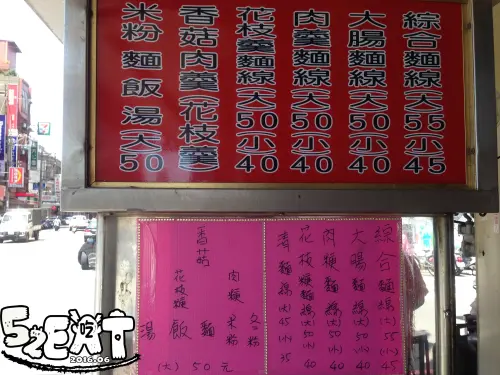 綜合麵線(大55小45
大腸麵線(大50小40
肉羹麵線(大50小40
花枝羹麵線(大50小40
香菇肉羹(花枝羹)
米粉麵飯湯(大50
綜合麵線(大)55(小)45
大腸麵線(大)50(小)40
肉焿麵線(大)50(小)40
花枝焿麵線(大)50(小)40
清麵線(大)45(小)35
香菇
肉焿 米粉 冬粉
花枝焿 飯 麵
湯
(大) 50元
52EAT
吃
2016.06